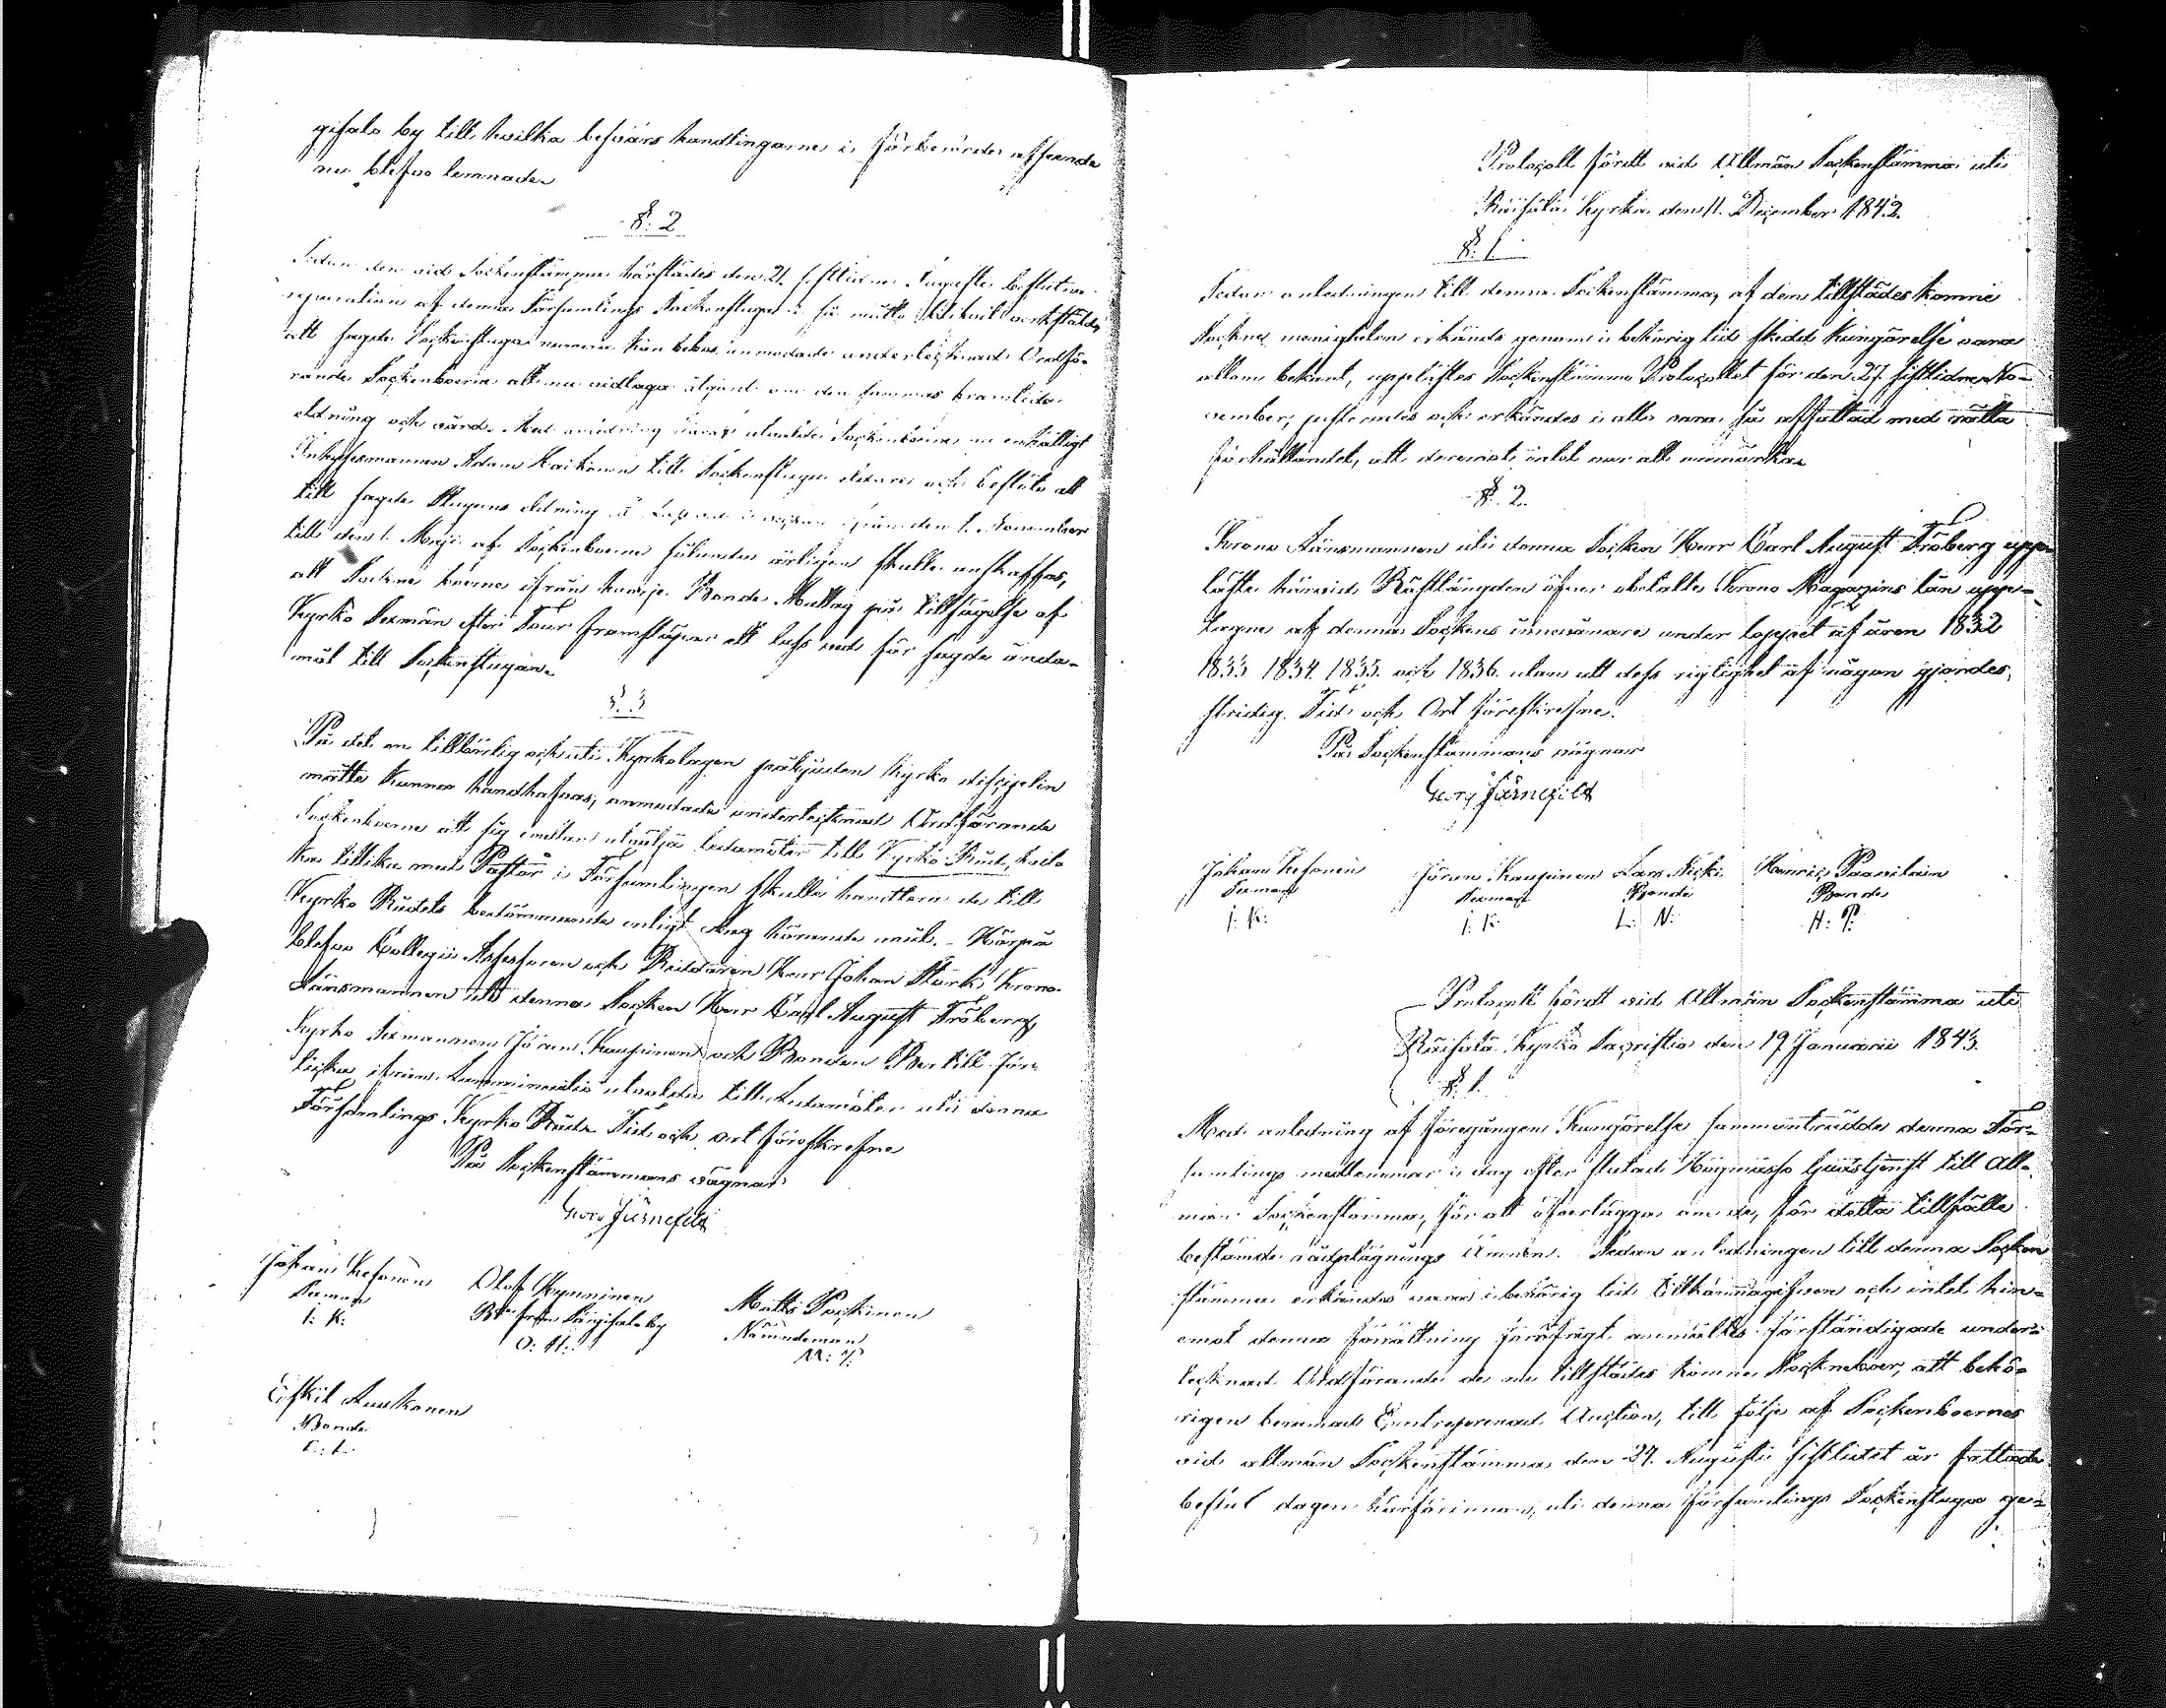 gifalo by till hvilka besvärs handlingarne i förberörde afseende
nu blefvo lemnade
§: 2
Sedan den vid Sockenstämma härstädes den 21. sistledne Augusti beslutne
reparation af denna Församlings Sockenstuga i så måtto blifvit verkstäld,
att sagde Sockenstuga numera kan bebos, anmodade undertecknad Ordfö-
rande Sockenboerne att nu vidtaga åtgärd om den sammas framtida
eldning och vård. Med anledning häraf utvalde Sockenboerne nu enhälligt
Inhysesmannen Adam Kaikonen till Sockenstugu eldare och besluto att
till sagde Stugans eldning från den 1. November
till den 1. Maji af Sockenboerne sålunda årligen skulle anskaffas,
att Sockne boerne ifrån hvarje Bonde Mattag på tillsägelse af
Kyrko Sexmän efter Tour framsläpar ett lass ved för sagde ända-
mål till Sockenstugan.
§: 3
På det en tillbörlig och uti Kyrkolagen påbjuden Kyrko disciplin
måtte kunna handhafvas, anmodade undertecknad Ordförande
Sockenboerne att sig emellan utvälja ledamöter till Kyrko Råd, hvil-
ka tillika med Pastor i Församlingen skulle handtera de till
Kyrko Rådets bedömmande enligt Lag hörande mål. - Härpå
blefvo Collegii Assessoren och Riddaren Herr Johan Stark, Krono
Länsmannen uti denna Socken Herr Carl August Fröberg
Kyrko Sexmannen Jöran Kaupinen och Bonden Bertill Jör-
ifrån utvalde till Ledamöter uti denna
Församlings Kyrko Råd. Tid och ort föreskrefne
På Sockenstämmans vägnar
Georg Järnefelt
Johan Kesonen Olof Kynninen Matts Poskinen
Sexman Bde från Särgisalo by Nämndeman
I: K: O: K: M: P:
Eskil Auskonen
Bonde
Protocoll fördt vid Allmän Sockenstämma uti
Räisälä Kyrka den 11. December 1842.
§: 1
Sedan anledningen till denna Sockenstämma, af den tillstädes komne
Sockne menigheten erkändes genom i behörig tid skedd kungörelse vara
allom bekant, upplästes Sockenstämmo Protocollet för den 27. sistledne No-
vember, justerades och erkändes i allo vara så affattad med rätta
förhållandet, att deremot intet var att anmärka.
§: 2.
Krono Länsmannen uti denna Socken Herr Carl August Fröberg upp-
läste härvid Restlängden öfver obetalte Krono Magazins lån upp-
tagne af denna Sockens innevånare under loppet af åren 1832
1833 1834. 1835. och 1836. utan att dess rigtighet af någon gjordes
stridig. Tid och Ort föreskrefne.
På Sockenstämmans vägnar
Georg Järnefelt
Johan Kesonen Jöran Kaupinen Lars Nicki Henric Paavilain
Sexman Sexman Bonde Bonde
I: K: J: K: L: N: H: P:
Protocoll fördt vid Allmän Sockenstämma uti
Räisälä Kyrko Sacristia den 19 Januarii 1843.
§: 1.
Med anledning af föregången Kungörelse sammanträdde denna För-
samlings medlemmar i dag efter slutad Högmässo Gudstjenst till All-
män Sockenstämma, för att öfverlägga om de, för detta tillfälle
bestämde rådplägnings Ämnen. Sedan anledningen till denna Socken
stämma erkändes vara i behörig tid tillkännagifven och intet hin-
emot denna förrättning förefrågt anmältes förständigade under-
tecknad Ordförande de nu tillstädes komne Sockneboer, att behö-
rigen beramad Entreprenad Auction, till följe af Sockenboernes
vid allmän Sockenstämma den 27. Augusti sistledet år fattade
beslut dagen härförinnan, uti denna församlings Sockenstuga ge-